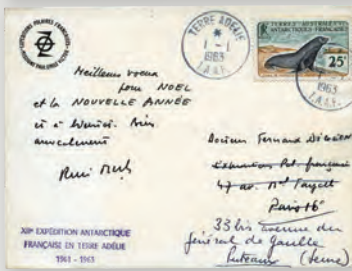 EXPÉDITIONS POLAIRES FRANÇAISES
TERRE ADÉLIE
1-1
1963
T.A.A.F.
TERRES AUSTRALES
ANTARCTIQUES FRANÇAISES
25F
1963
T.A.A.F.
Meilleurs voeux
pour NOEL
et la NOUVELLE ANNÉE
et à bientôt. Bien
amicalement
Docteur Fernand
Expéditions Pol. françaises
47 av. Mal Fayolle
Paris 16e
33 bis avenue du
général de Gaulle
Puteaux (Seine)
XIIe EXPÉDITION ANTARCTIQUE
FRANÇAISE EN TERRE ADÉLIE
1961 - 1963